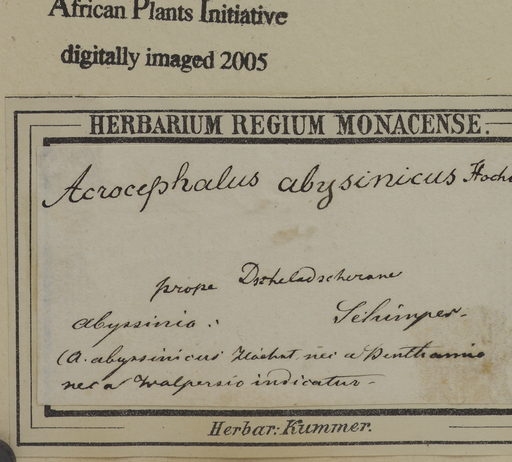 African Plants Initiative
digitally imaged 2005
HERBARIUM REGIUM MONACENSE.
Acrocephalus abysinicus Hochs
prope Dscheladscherane
abyssinia. Schimper.
(A. abyssinicus Hochst nec a Benthamio
nec a Walpersio indicatur.
Herbar: Kummer.